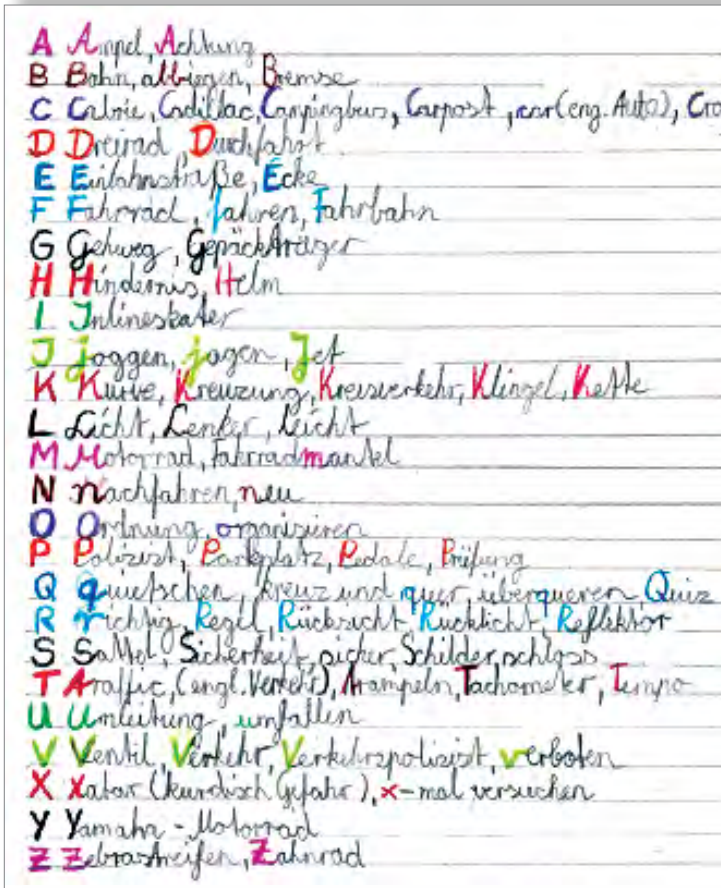 A Ampel, Achtung
B Bahn, abbiegen, Bremse
C Cabrio, Cadillac, Campingbus, Carpost, car (eng. Auto), Cro
D Dreirad, Durchfahrt
E Einbahnstraße, Ecke
F Fahrrad, fahren, Fahrbahn
G Gehweg, Gepäckträger
H Hindernis, Helm
I Inlineskater
J joggen, jagen, Jet
K Kurve, Kreuzung, Kreisverkehr, Klingel, Kette
L Licht, Lenker, leicht
M Motorrad, Fahrradmantel
N nachfahren, neu
O Ordnung, organisieren
P Polizist, Parkplatz, Pedale, Prüfung
Q quietschen, kreuz und quer, überqueren, Quiz
R richtig, Regel, Rücksicht, Rücklicht, Reflektor
S Sattel, Sicherheit, sicher, Schilder, schloss
T traffic, (engl. Verkehr), trampeln, Tachometer, Tempo
U Umleitung, umfallen
V Ventil, Verkehr, Verkehrspolizist, verboten
X Xatar (kurdisch Gefahr), x-mal versuchen
Y Yamaha-Motorrad
Z Zebrastreifen, Zahnrad